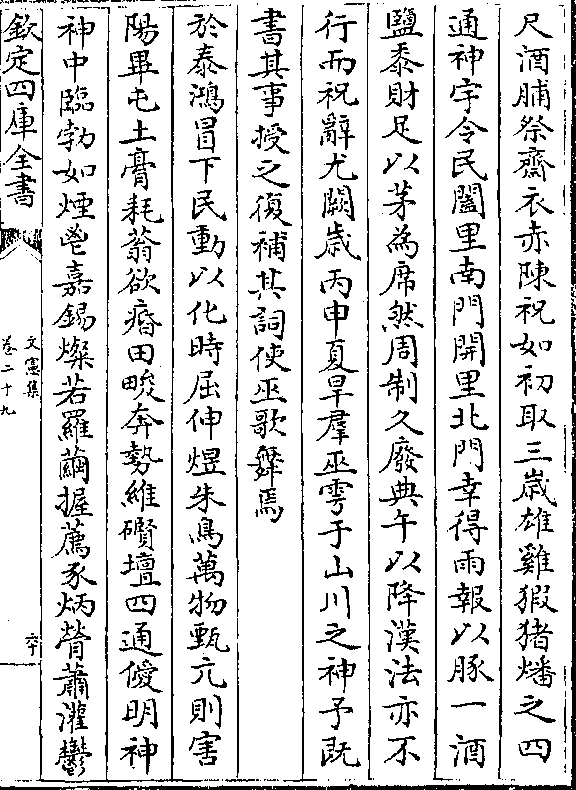 尺酒脯祭齋衣赤陳祝如初取三歲雄雞猳猪燔之四
通神宇令民闔里南門開里北門幸得雨報以豚一酒
鹽黍財足以茅為席然周制久廢典午以降漢法亦不
行而祝辭尤闕歲丙申夏旱羣巫雩于山川之神予既
書其事授之復補其詞使巫歌舞焉
於泰鴻冒下民動以化時屈伸煜朱鳥萬物甄亢則害
陽畢屯土膏耗蓊欲瘖田畯奔勢維礥壇四通優明神
神中臨勃如煙鬯嘉錫燦若羅繭握薦豕炳膋蕭灌鬱
欽定四庫全書
文憲集
卷二十九
六十